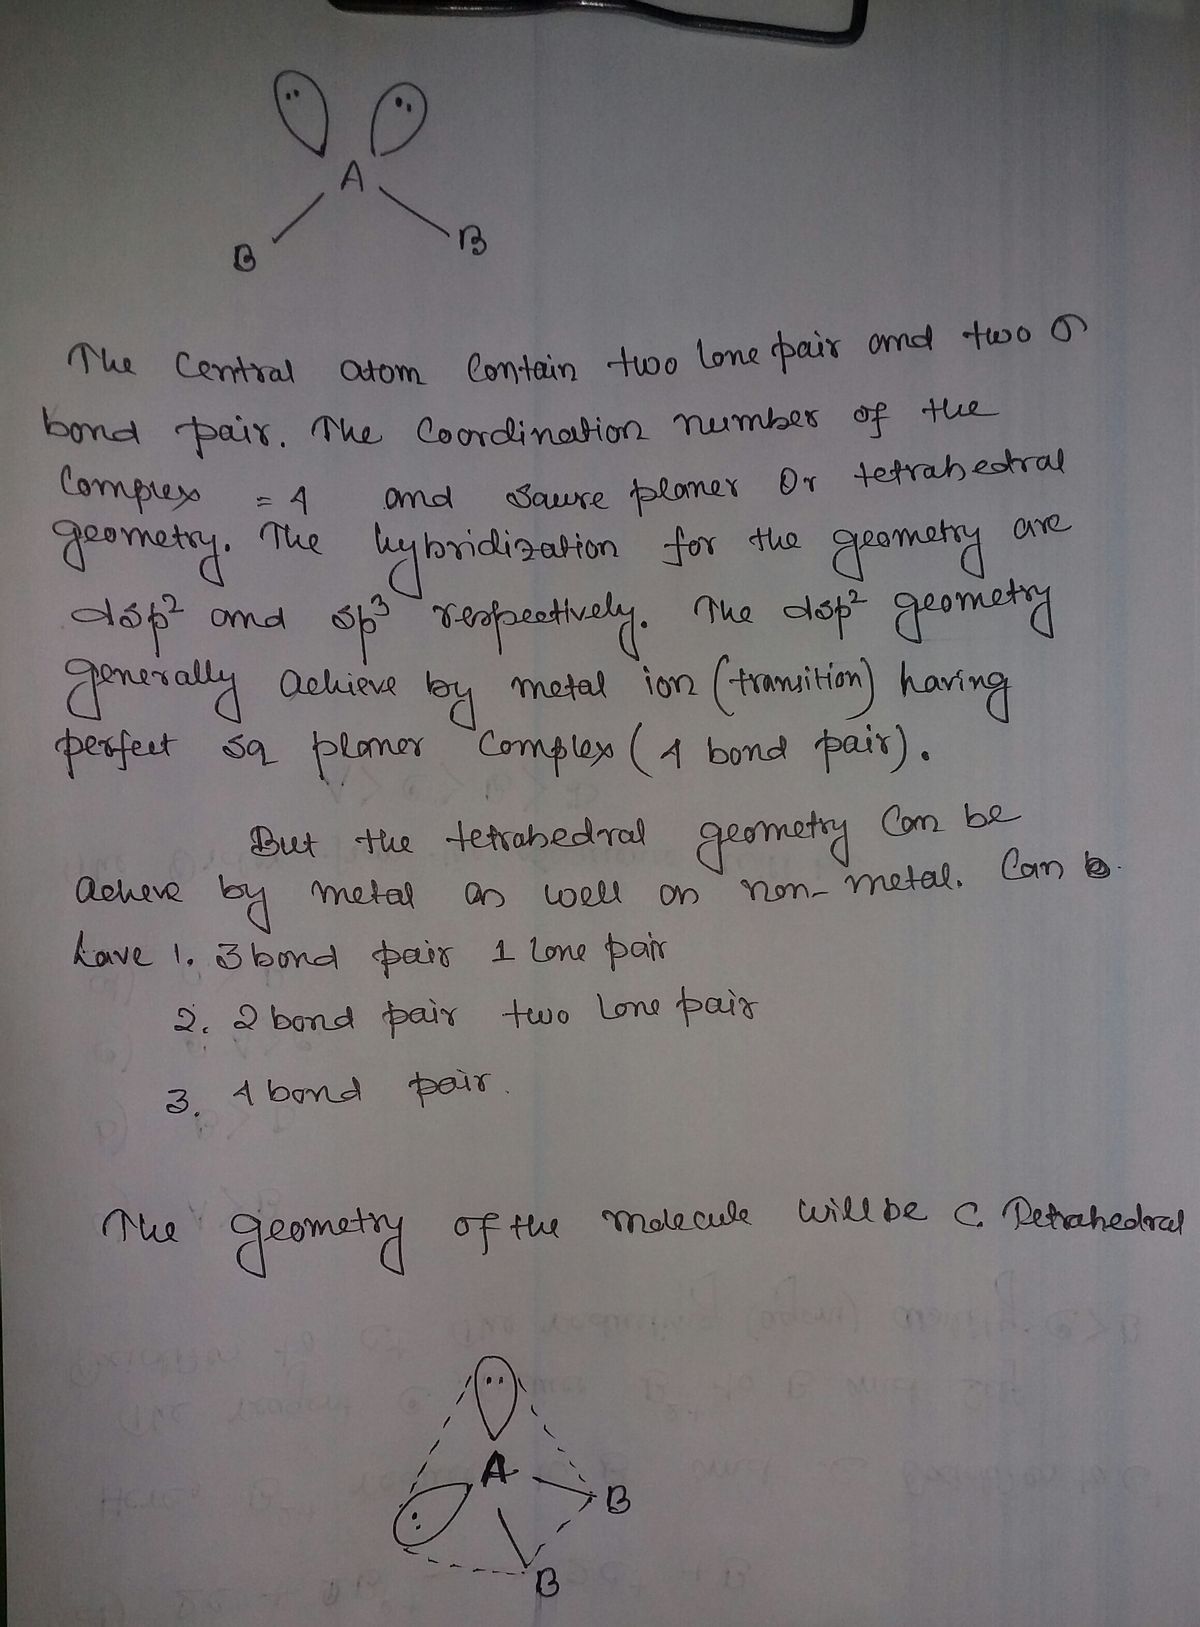 A
B
B
The Central atom Contain two lone pair and two σ
bond pair. The Coordination number of the
Complex = 4 and Saure planer Or tetrahedral
geometry. The hybridization for the geometry are
dsp² and sp³ respectively. The dsp² geometry
generally achieve by metal ion (transition) having
perfect sq planer Complex (4 bond pair).
But the tetrahedral geometry Can be
acheve by metal as well as non-metal. Can
have 1. 3 bond pair 1 lone pair
2. 2 bond pair two lone pair
3. 4 bond pair.
The geometry of the molecule will be C. Tetrahedral
A
B
B